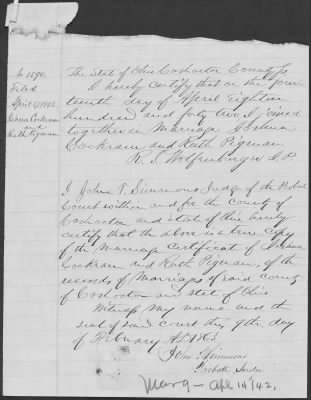 No 1590.
Filed
April 27 1842
Joshua Cockram
and
Ruth Pigman
The State of Ohio Coshocton County Ss
I hereby certify that on the four
teenth day of April Eighteen
hundred and forty two I joined
together in Marriage Joshua
Cockram and Ruth Pigman
Wolfenbarger J.P.
I John Simmons Judge of the Probate
Court within and for the county of
Coshocton and state of Ohio hereby
certify that the above is a true copy
of the Marriage Certificate of Joshua
Cockram and Ruth Pigman, of the
records of Marriages of said county
of Coshocton and state of Ohio
Witness my name and the
seal of said court this 9th day
of February A.D. 1863
John Simmons
Probate Judge
Marg - Apl 14/42.